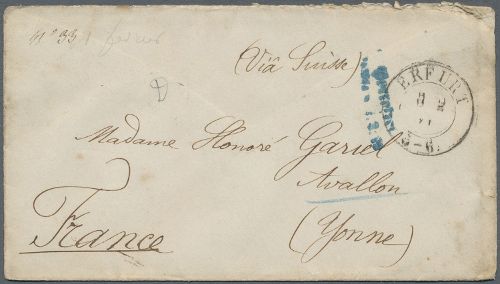 Nº 33
(Viâ Suisse)
ERFURT
5-6.
Madame Honoré Gariel
Avallon
(Yonne)
France